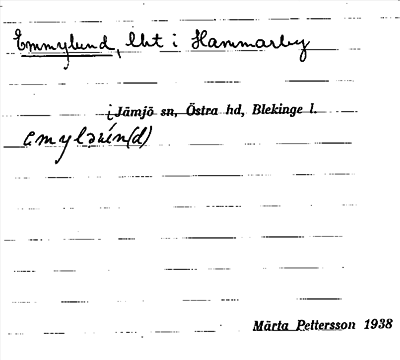 Emmylund, lht i Hammarby
i Jämjö sn, Östra hd, Blekinge l.
Märta Pettersson 1938